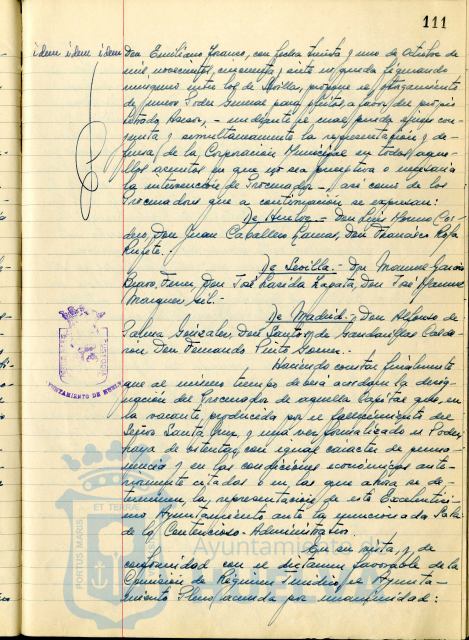 111
idem idem idem
Don Emiliano Franco, con fecha treinta y uno de Octubre de
mil novecientos cincuenta y siete no queda figurando
ninguno entre los de Sevilla, propone el otorgamiento
de nuevo Poder General para pleitos, a favor del propio
Letrado Asesor, - mediante el cual pueda ejercer con-
junta y simultaneamente la representación y de-
fensa, de la Corporación Municipal en todos aque-
llos asuntos en que no sea preceptiva o necesaria
la intervención de Procurador - así como de los
Procuradores que a continuación se expresan:
De Huelva.- Don Luis
Don Juan Caballero Don Francisco
De Sevilla.- Don Manuel García
Bravo Ferrer, Don José Zapata, Don José Manuel
Marquez Gil.-
De Madrid.- Don Alfonso de
Palma Gonzalez, Don Santos de Gandarillas Calde-
ron Don Fernando Pinto Gomez.-
Haciendo constar finalmente
que al mismo tiempo deberá acordarse la desig-
nación del Procurador de aquella Capital que, en
la vacante, producida por el fallecimiento del
Señor Santa Cruz, y una vez formalizado el Poder,
haya de ostentar, con igual caracter de perma-
nencia y en las condiciones económicas ante-
riormente citadas o en las que ahora se de-
terminen, la representación de este Excelentísi-
mo Ayuntamiento ante la mencionada Sala
de lo Contencioso-Administrativo.
que en vista, y de
conformidad con el dictamen favorable de la
Comisión de Régimen Interior el Ayunta-
miento Pleno acuerda por unanimidad:
AYUNTAMIENTO DE HUELVA
PORTUS MARIS
ET TERRAE
Ayuntamiento de